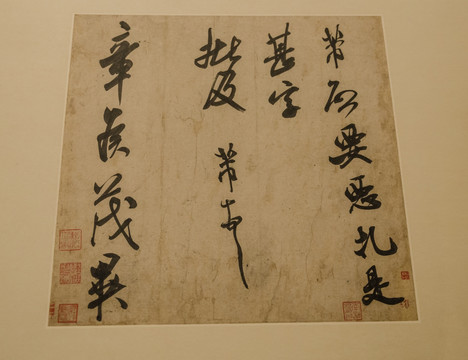 芾啓要惡札是
甚字
批及 芾頓首
章侯茂異